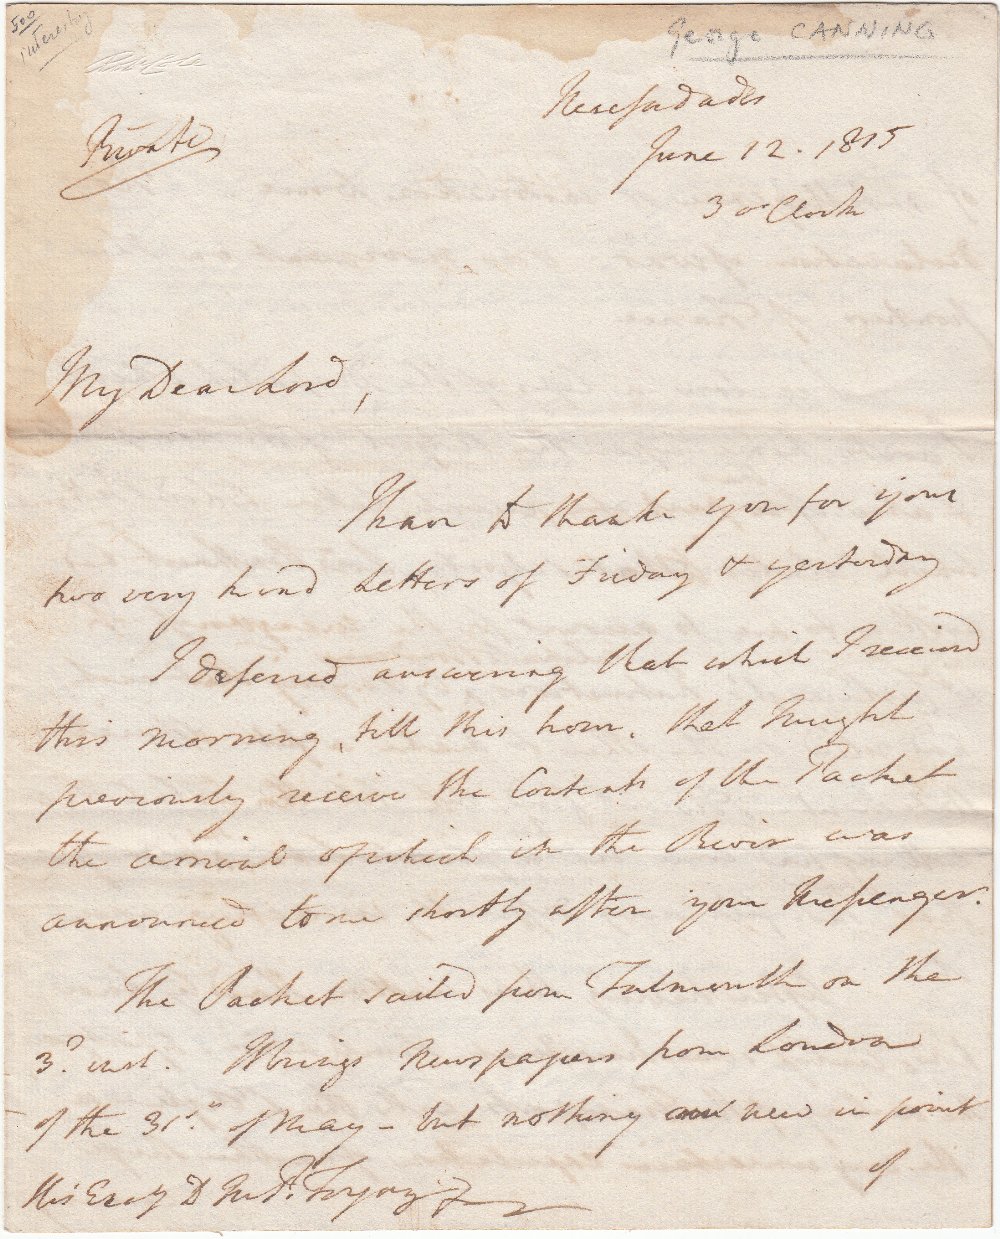 500
interesting
George CANNING
Private
Necessidades
June 12. 1815
3 o'Clock
My Dear Lord,
I have to thank you for your
two very kind Letters of Friday & yesterday
I deferred answering that which I received
this morning, till this hour, that I might
previously receive the Contents of the Packet
the arrival of which in the River was
announced to me shortly after your Messenger.
The Packet sailed from Falmouth on the
3d. inst. It brings Newspapers from London
of the 31st. of May - but nothing new in point
of
His Excy D M. Pr. Forjaz